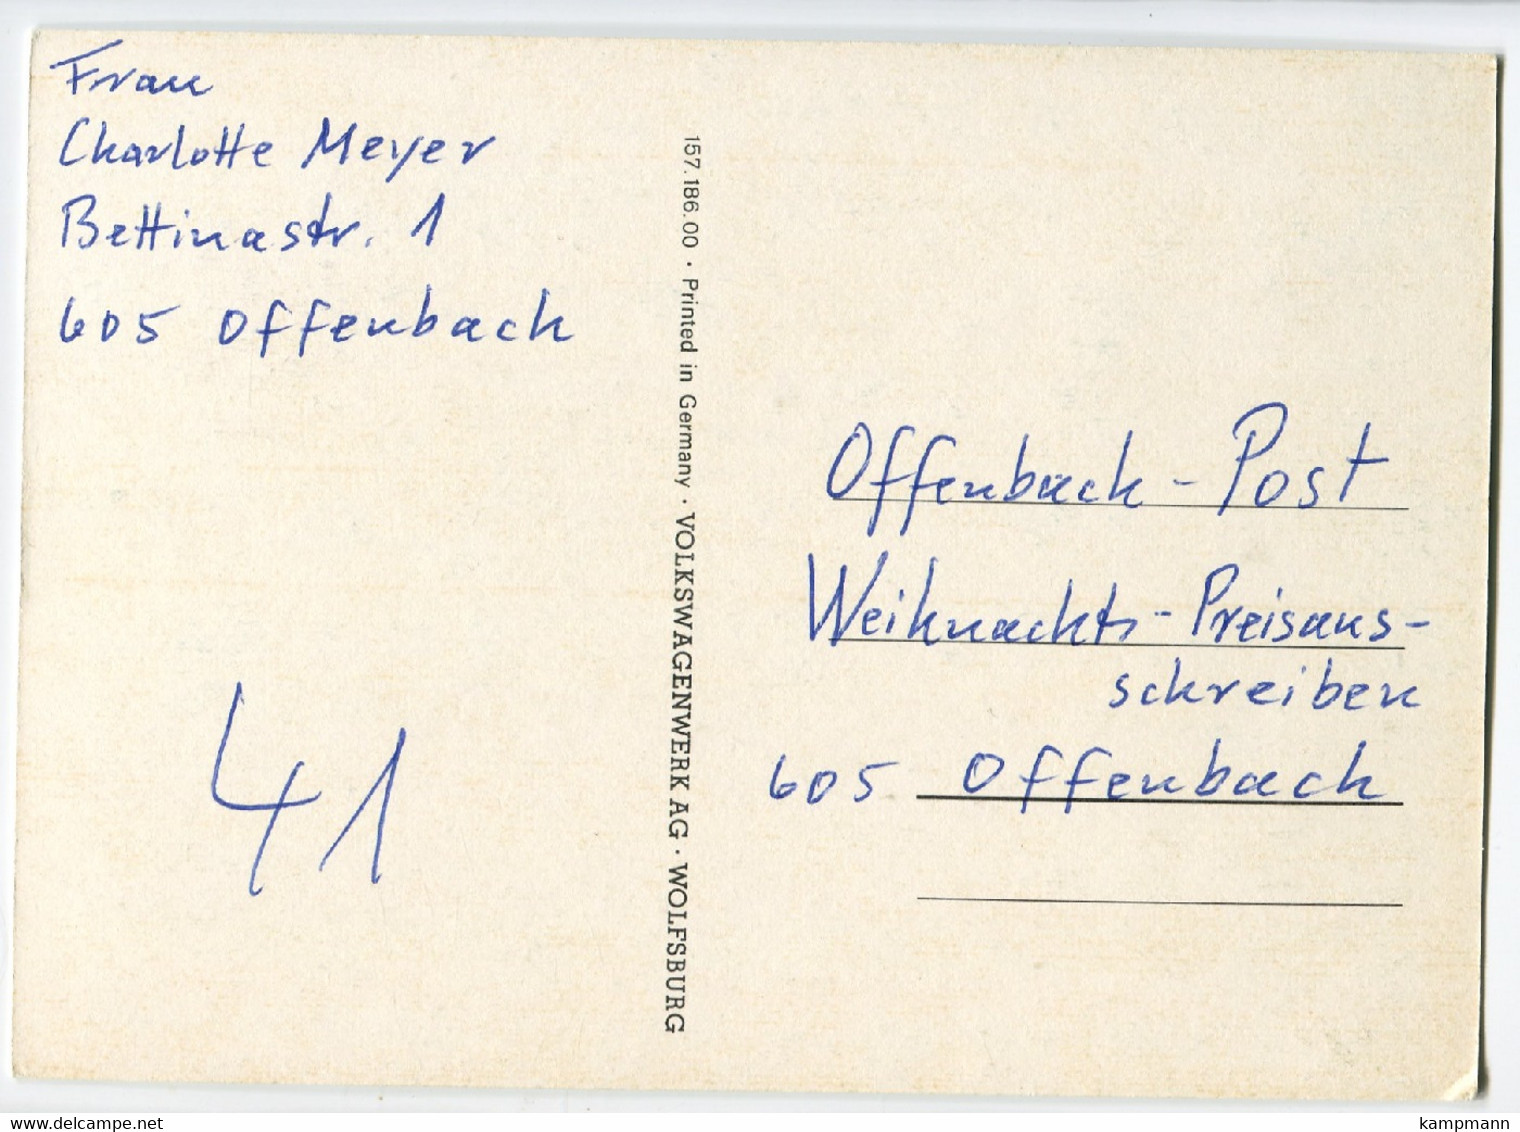 Frau
Charlotte Meyer
Bettinastr. 1
605 Offenbach
41
157.186.00 · Printed in Germany · VOLKSWAGENWERK AG · WOLFSBURG
Offenbach-Post
Weihnachts-Preisaus-
schreiben
605 Offenbach
www.delcampe.net
kampmann